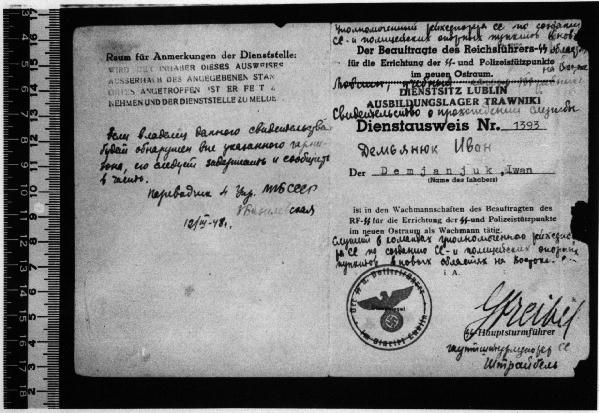 Raum für Anmerkungen der Dienststelle:
WIRD DER INHABER DIESES AUSWEISES
AUSSERHALB DES ANGEGEBENEN STAN
ORTES ANGETROFFEN IST ER FE T Z
NEHMEN UND DER DIENSTSTELLE ZU MELDE
Если владелец данного свидетельства
будет обнаружен вне указанного гарни-
зона, его следует задержать и сообщить
в часть.
Переводчик 4 Упр. МГБ СССР
12/III-48г.
Уполномоченный рейхсфюрера СС по созданию
СС-и полицейских опорных пунктов в новых
областях
на Востоке
Der Beauftragte des Reichsführers-SS
für die Errichtung der SS- und Polizeistützpunkte
im neuen Ostraum.
Люблин, учебный
DIENSTSITZ LUBLIN
AUSBILDUNGSLAGER TRAWNIKI
Свидетельство о прохождении службы
Dienstausweis Nr. 1393
Демьянюк Иван
Der Demjanjuk, Iwan
(Name des Inhabers)
ist in den Wachmannschaften des Beauftragten des
RF-SS für die Errichtung der SS- und Polizeistützpunkte
im neuen Ostraum als Wachmann tätig.
Служит в командах уполномоченного рейхсфюре-
ра СС по созданию СС-и полицейских опорных
пунктов в новых областях на Востоке.
i A.
Streibel
SS-Hauptsturmführer
гауптштурмфюрер СС
Штрайбель
Der SS u. Polizeiführer
im Distrikt Lublin
3 4 5 6 7 8 9 10 11 12 13 14 15 16 17 18